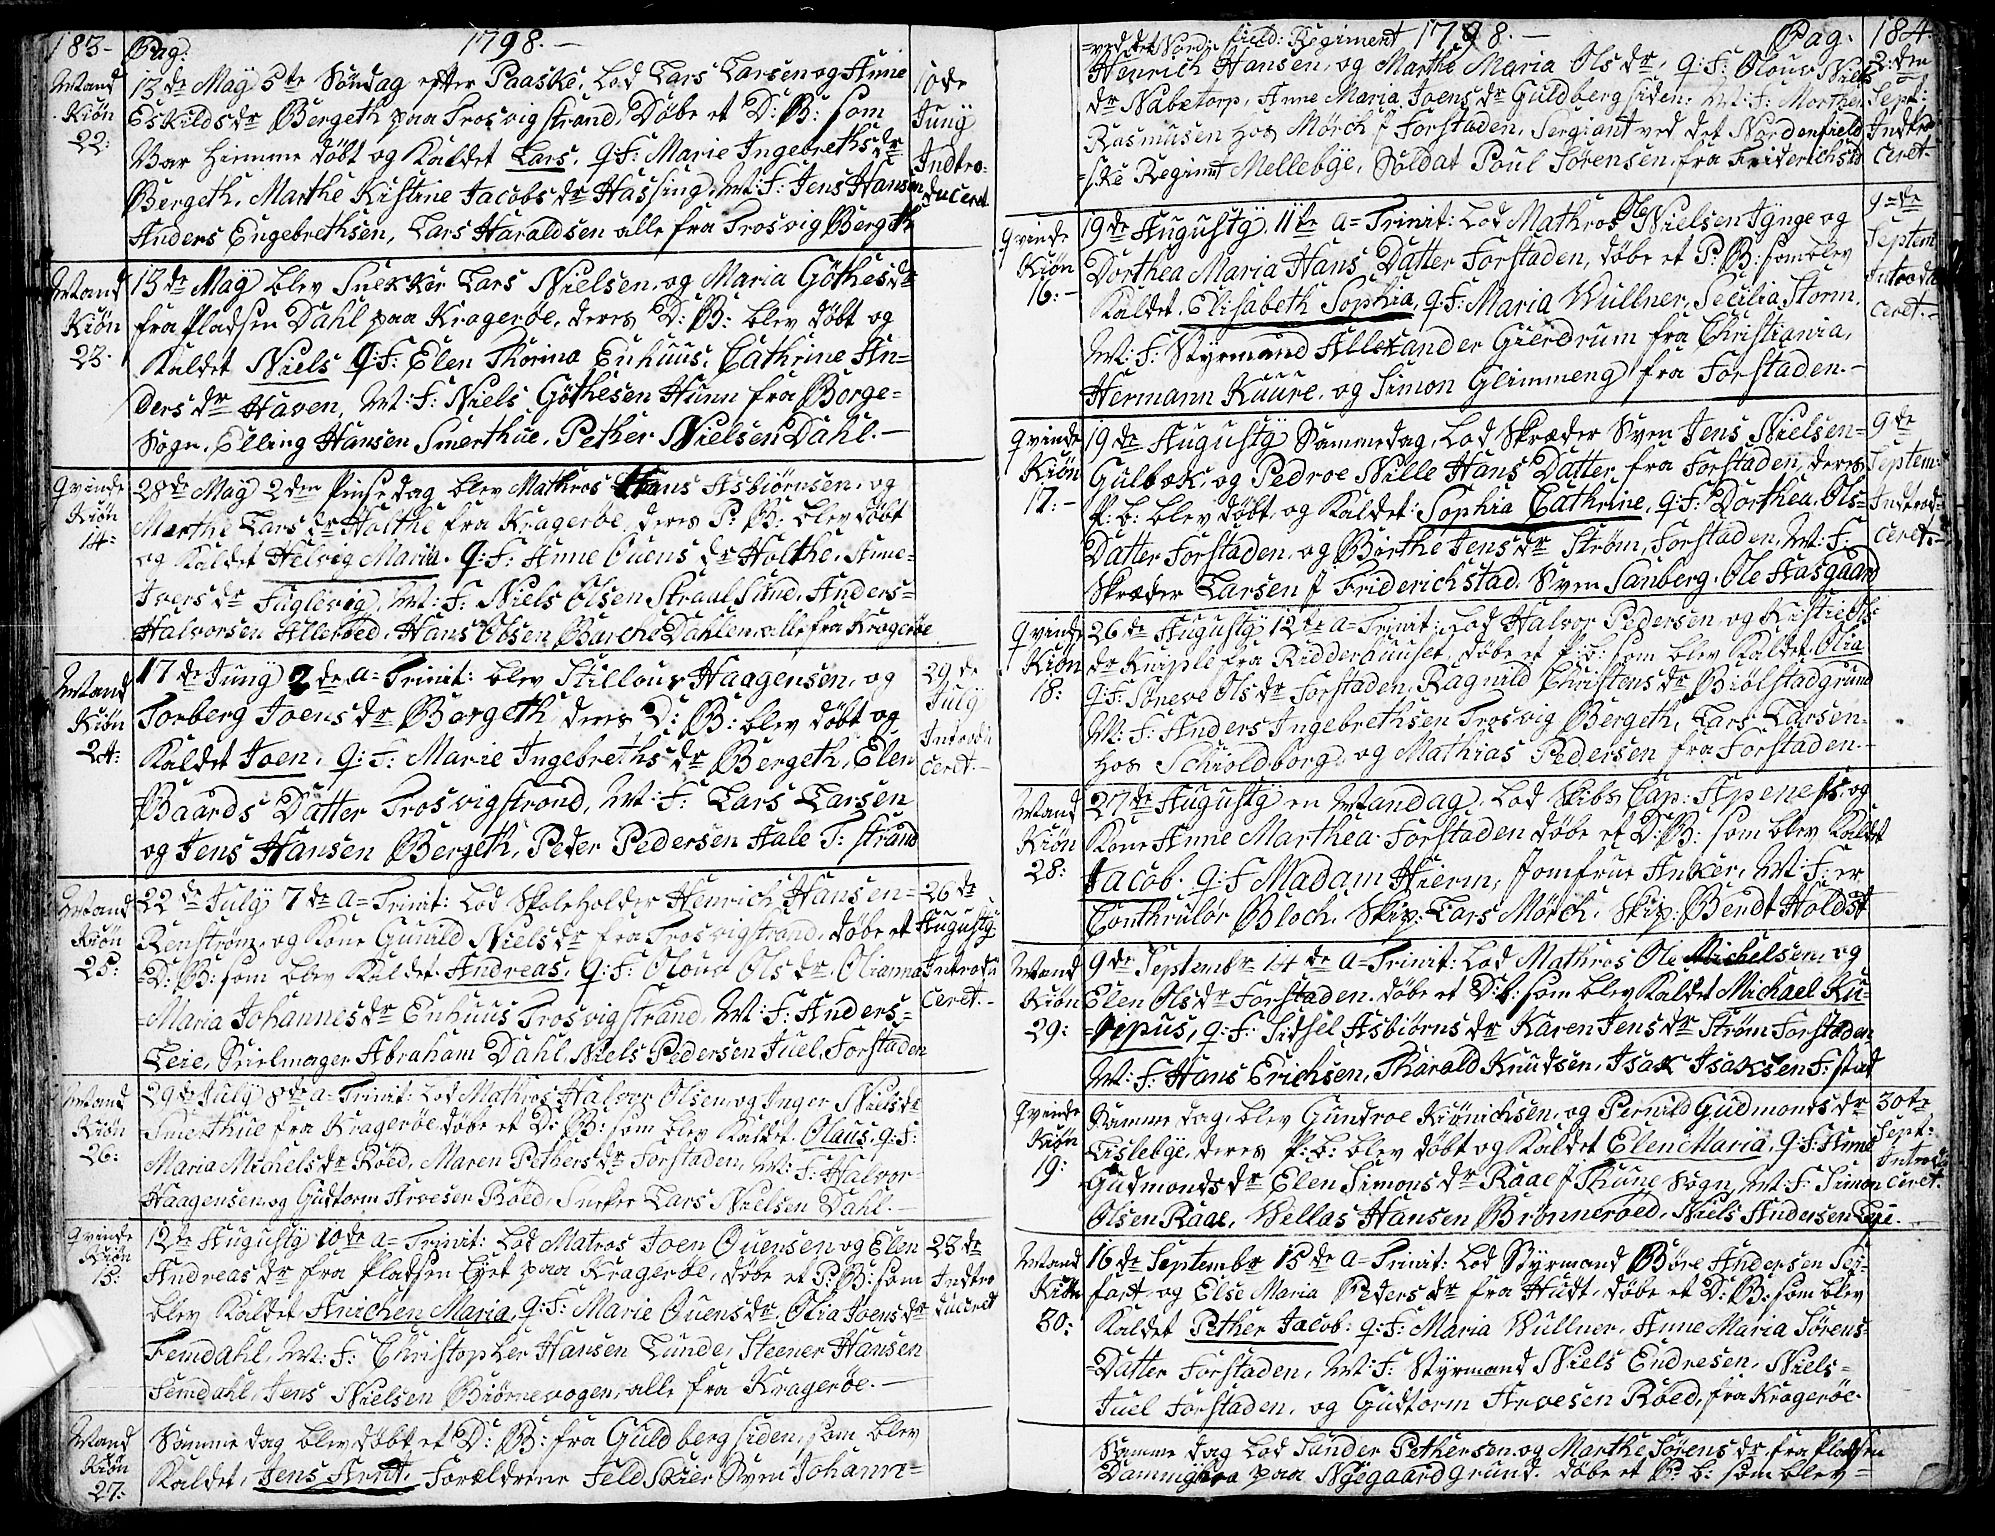 183- Pag: 1798.-
Mand
Kiøn
22:
13de Maÿ 5te Søndag efter Paaske, Lod Lars Larsen og Anne
Eskildsdr Bergeth paa Trosvigstrand, Døbe et D: B: som
Var hiemme døbt og Kaldet Lars. q: F: Marie Ingebrethsdr
Bergeth, Marthe Kistine Jacobsdr Hassing, M: F: Jens Hansen
Anders Engebrethsen, Lars Haraldsen alle fra Trosvig Bergeth
10de
Junÿ
Indtro-
duceret
Mand
Kiøn
23.
13de Maÿ blev Snekker Lars Nielsen, og Maria Göthesdr
fra Pladsen Dahl paa Kragerøe, deres D: B: blev døbt og
Kaldet Niels q: F: Elen Thorina Enhuus, Cathrine An=
dersdr Haven, M: F: Niels Göthesen Hunn fra Borge=
Sogn, Elling Hansen Smerthue, Pether Nielsen Dahl.-
Qvinde
Kiøn
14:
28de Maÿ 2den Pinsedag blev Mathros Hans Asbiørnsen, og
Marthe Larsdr Holthe fra Kragerøe, deres P: B: blev døbt
og Kaldet Helvig Maria. q: F: Anne Ouensdr Holthe, Anne=
Iversdr Fuglevig, M: F: Niels Olsen Straalsund, Anders=
Halvorsen Allerøed, Hans Olsen Barch Dahlen alle fra Kragerøe
Mand
Kiøn
24:
17de Junÿ 2de a= Trinit: blev Stillouv Haagensen, og
Torberg Joensdr Bergeth, deres D: B: blev døbt og
Kaldet Joen, q: F: Marie Ingebrethsdr Bergeth, Elen
Baards Datter Trosvigstrond, M: F: Lars Larsen
og Jens Hansen Bergeth, Peder Pedersen Hale T: Strand
29de
Julÿ
Introdu
ceret.-
Mand
Kiøn
25:
22de Julÿ 7de a= Trinit: Lod Skoleholder Henrich Hansen=
Renstrøm, og Kone Gunild Nielsdr fra Trosvigstrand, døbe et
D: B: som blev Kaldet Andreas, q: F: Olouv Olsdr, Olianna
=Maria Johannesdr Enhuus Trosvigstrand, M: F: Anders=
Leie, Seielmager Abraham Dahl, Niels Pedersen Juel, Forstaden
26de
Augustÿ
Introdu
ceret.-
Mand
Kiøn
26:
29de Julÿ 8de a= Trinit: Lod Mathros Halvor Olsen, og Inger Nielsdr
Smerthue fra Kragerøe døbe et D: B: som blev Kaldet Olaus, q: F:
Maria Michelsdr Røed, Maren Pethersdr Forstaden, M: F: Halvor
Haagensen og Gudtorm Arvesen Røed, Sneker Lars Nielsen Dahl.-
Qvinde
Kiøn
15:
12te Augustÿ 10de a= Trinit: Lod Matros Joen Ouensen og Elen
Andreasdr fra Pladsen Lyet paa Kragerøe, døbe et P: B: som
blev Kaldet Anichen Maria, q: F: Marie Ouensdr, Olia Joensdr
Femdahl, M: F: Christopher Hansen Lunde, Steener Hansen
Femdahl, Jens Nielsen Biørnevogen, alle fra Kragerøe.-
23de
Indtro
duceret
Mand
Kiøn
27:
Samme dag blev døbt et D: B: fra Guldbergsiden, som blev
Kaldet, Jens Arnt. Forældrene Feldskier Sven Johann=
=ved det Nord: field: Regiment 1798.- Pag: 184
Henrich Hansen, og Marthe Maria Olsdr, q: F: Olouv Niels
dr Nabetorp, Anne Maria Joensdr Guldbergsiden, M: F: Morthen
Rasmusen hos Mörch f Forstaden, Sergiant ved det Nordenfield
=ske Regimt Mellebÿe, Soldat Poul Sörensen, fra Friderichstd
2:den
Sept:
Indtro
ceret.-
Qvinde
Kiøn
16:-
19de Augustÿ 11te a= Trinit: Lod Mathros Ole Nielsen Tÿnge og
Dorthea Maria Hans Datter Forstaden, døbe et P: B: som blev
Kaldet, Elisabeth Sophia, q: F: Maria Wullner, Secilia Storm,
M: F: Styrmand Allexander Gierdrum fra Christiania,
Hermann Kuure, og Simon Glimmeng fra Forstaden.-
9=de
Septem
Introdu
ceret.-
Qvinde
Kiøn
17:-
19de Augustÿ Sammedag, Lod Skræder Sven Jens Nielsen=
Gulbæk, og Pedroe Nille Hans Datter fra Forstaden, deres
P: b: blev døbt, og Kaldet: Sophia Cathrine, q: F: Dorthea Ols=
Datter Forstaden, og Birthe Jensdr Strøm, Forstaden, M: F:
Skræder Larsen f Friderichstad, Sven Sanberg, Ole Hasgaard
9de
Septem:
Indtrod=
ceret.-
Qvinde
Kiøn
18:
26de Augustÿ 12te a= Trinit: Lod Halvor Pedersen og Kistie Ols
dr Kniple fra Ridderhuuset, døbe et P: b: som blev Kaldet Olia
q: F: SØneve Olsdr Forstaden, Ragnild Christensdr Biølstadgrund
M: F: Anders Ingebrethsen Trosvig Bergeth, Lars Larsen
hos Schioldborg, og Mathias Pedersen fra Forstaden.-
Mand
Kiøn
28:
27de Augustÿ en Mandag, Lod Skibs Cap: Apenes, og
Kone Anne Marthea Forstaden døbe et D: B: som blev Kaldet
Jacob. q: F Madam Hierm, Jomfrue Anker, M: F: er
Conthrulör Bloch, Skip: Lars Mörch, Skip: Bendt Holdst
Mand
Kiøn
29:
9de Septembr 14de a= Trinit: Lod Mathros Ole Michelsen, og
Elen Olsdr Forstaden, døbe et D: b: som blev Kaldet Michael Ku=
=ripus, q: F: Sidsel Asbiørnsdr Karen Jensdr Strøm Forstaden
M: F: Hans Erichsen, Tharald Knudsen, Isak Isaksen F: stad
Qvinde
Kiøn
19:
Samme dag, blev Gundroe Kiönichsen, og Pernild Gudmondsdr
Lislebÿe, deres P: b: blev døbt og Kaldet Elen Maria, q: F: Anne
Gudmondsdr Elen Simonsdr Raae f Thune Sogn, M: F: Simon
Olsen Raae, Wellas Hansen Brønnerøed, Niels Andersen Leje.
30te
Sept:
Introdu
ceret.
Mand
Kiøn
30:
16de Septembr 15de a= Trinit: Lod Styrmand Böre Andersen Sei=
fart, og Else Maria Pedersdr fra Hudt, døbe et D: B: som blev
Kaldet Pether Jacob: q: F: Maria Wullner, Anne Maria Sörens=
=Datter Forstaden, M: F: Styrmand Niels Endresen, Niels=
Juel Forstaden, og Gudtorm Arvesen Røed, fra Kragerøe.
Samme dag Lod Sunder Pethersen og Marthe Sørensdr, fra Pladsen
Damming paa Nÿegaard grund. døbe et P: b: som blev=